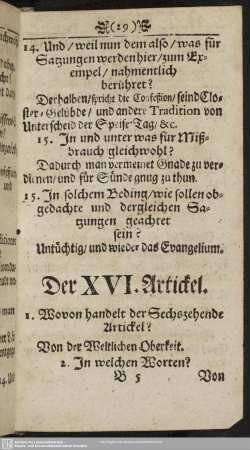 (29)
14. Und / weil nun dem also / was für
Satzungen werden hier / zum Ex-
empel / nahmentlich
berühret?
Derhalben / spricht die Confession / seind Clo-
ster-Gelübde / und andere Tradition von
Unterscheid der Speise Tag / &c.
15. In und unter was für Miß-
brauch gleichwohl?
Dadurch man vermeinet Gnade zu ver-
dienen / und für Sünde gnug zu thun.
15. In solchem Beding / wie sollen ob-
gedachte und dergleichen Sa-
tzungen geachtet
sein?
Untüchtig / und wieder das Evangelium.
Der XVI. Artickel.
1. Wovon handelt der Sechszehende
Artickel?
Von der Weltlichen Oberkeit.
2. In welchen Worten?
B 5 Von